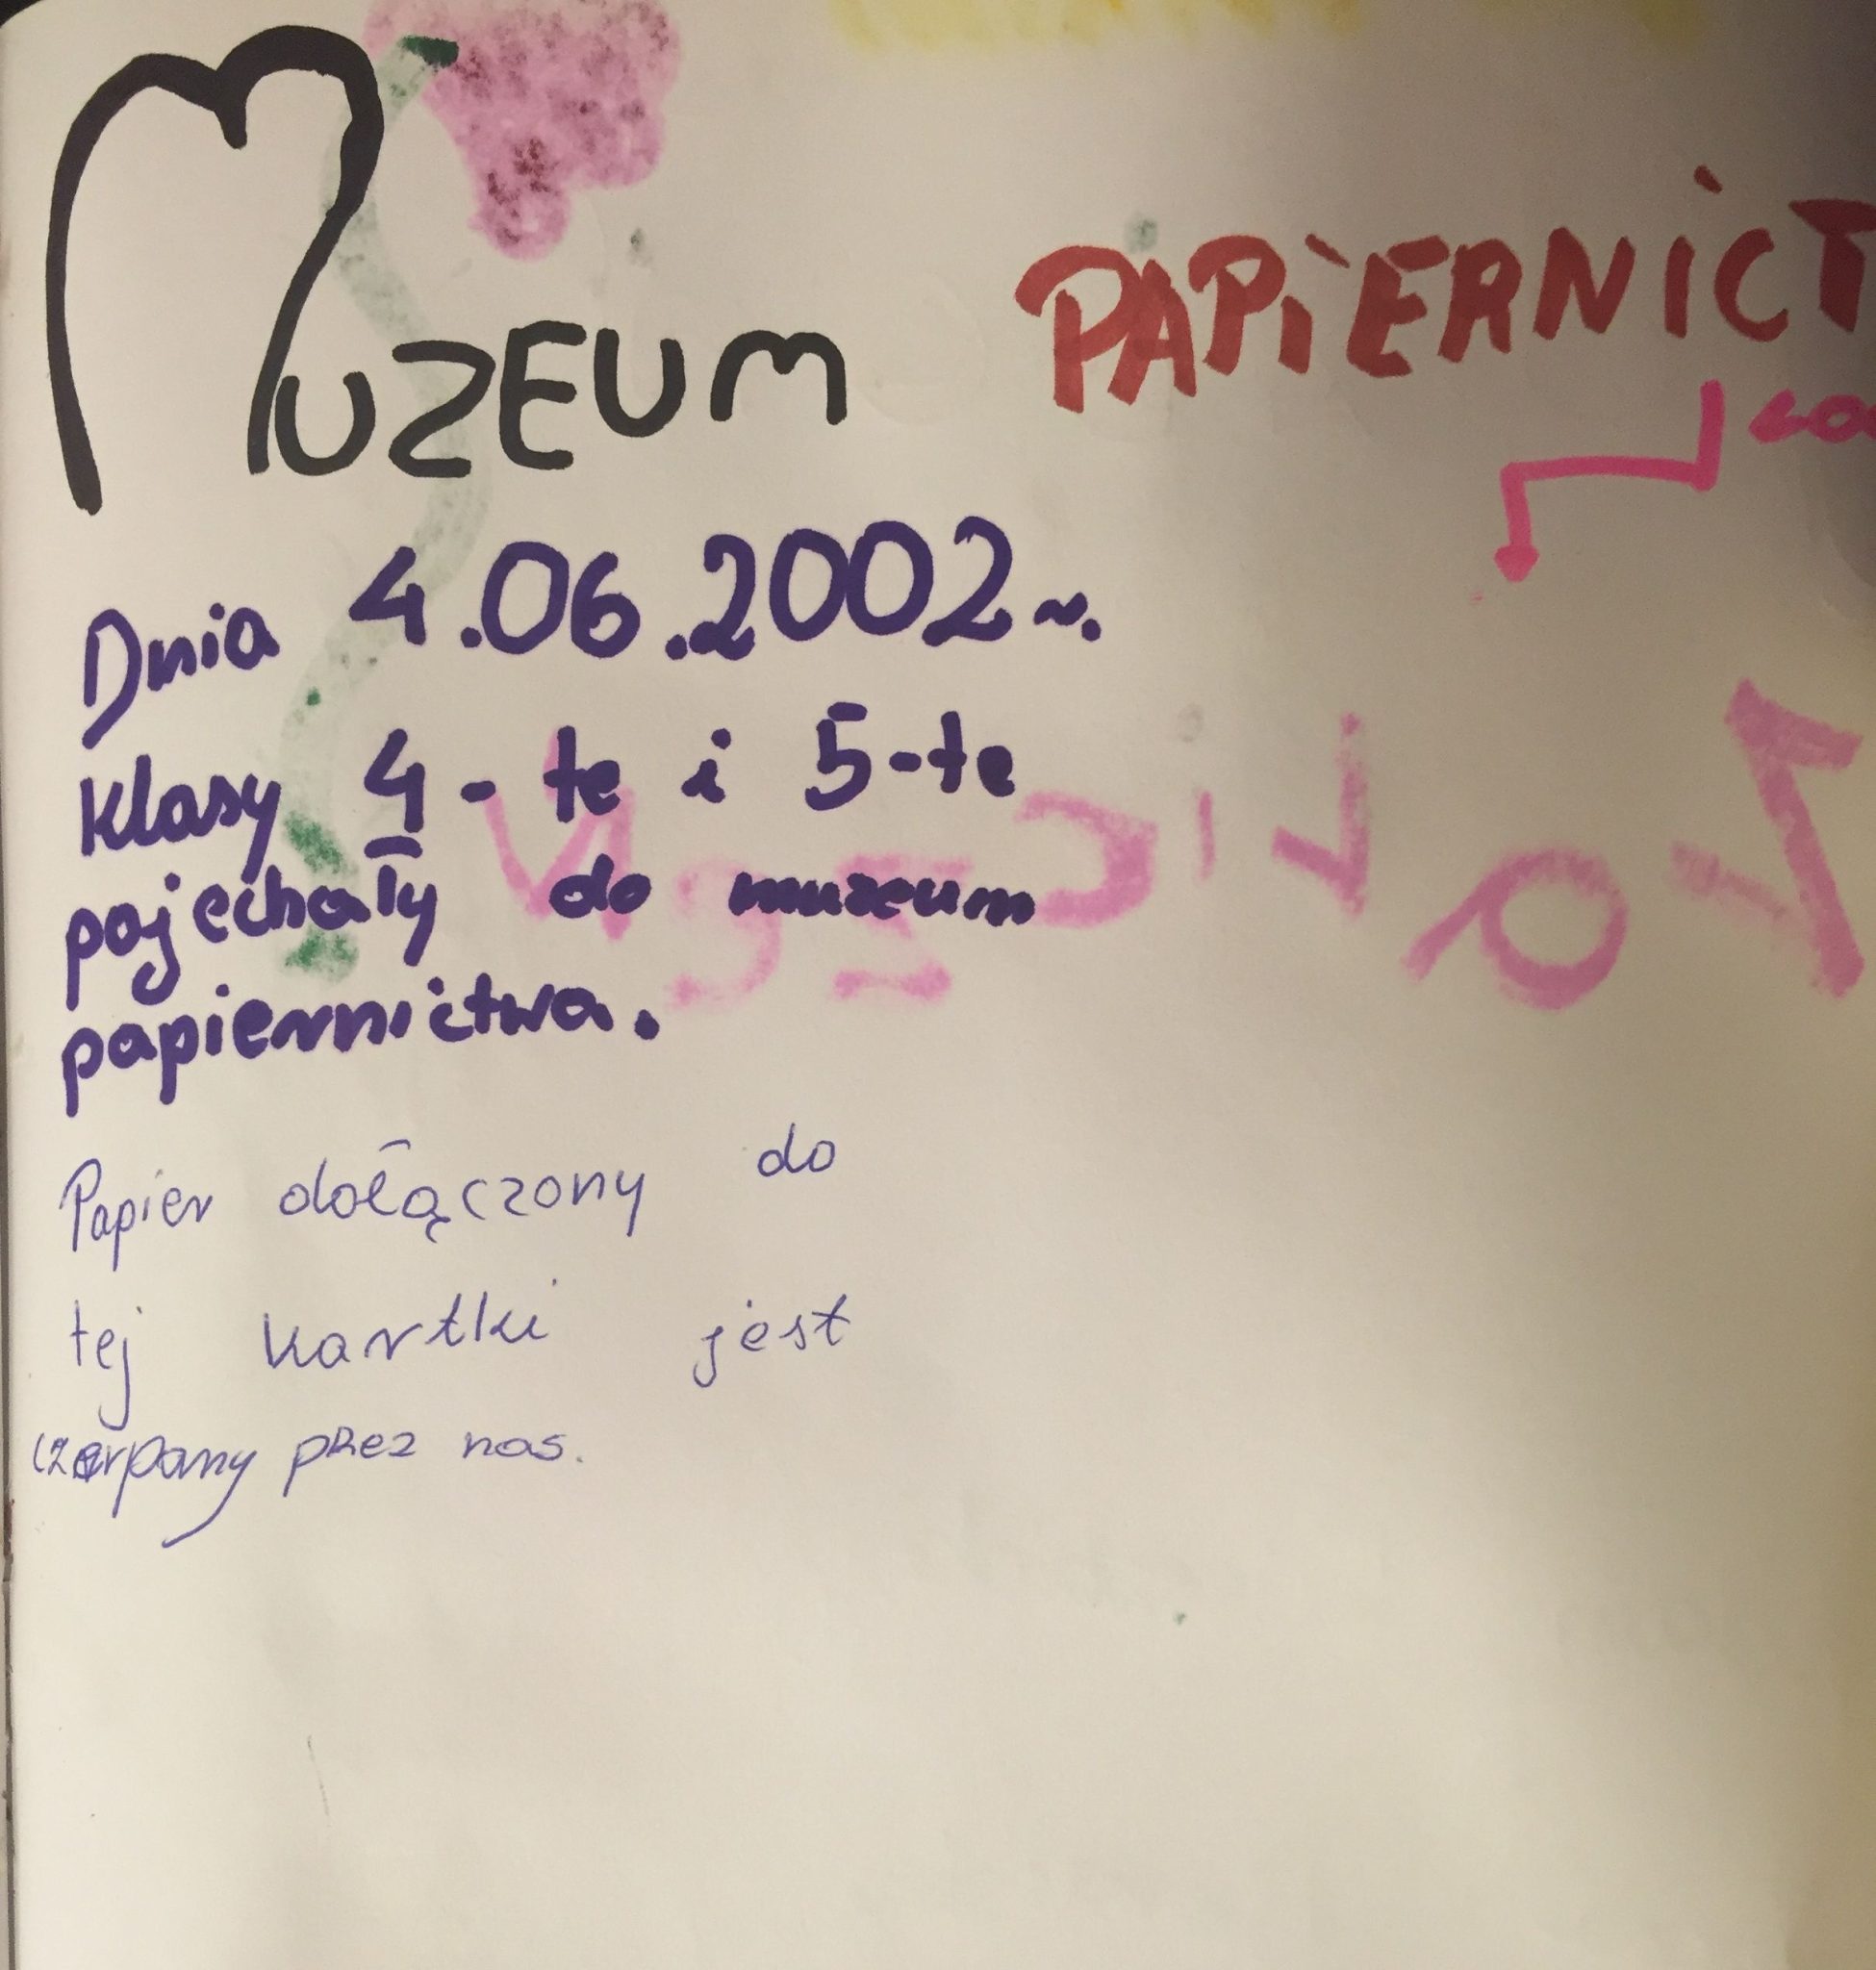 MUZEUM PAPIERNICT
Dnia 4.06.2002 r.
klasy 4-te i 5-te
pojechały do muzeum
papiernictwa.
Papier dołączony do
tej kartki jest
czerpany przez nas.